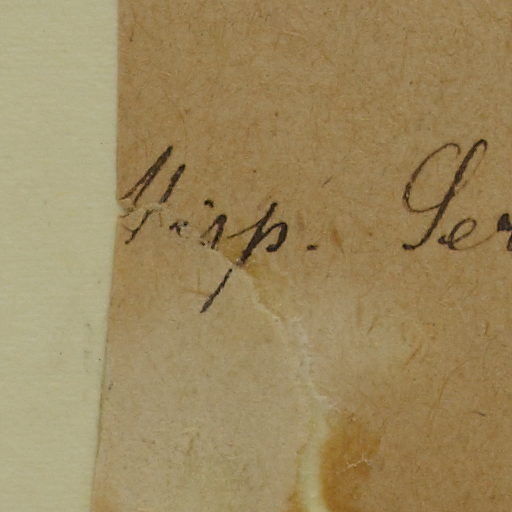 Hisp. Ser